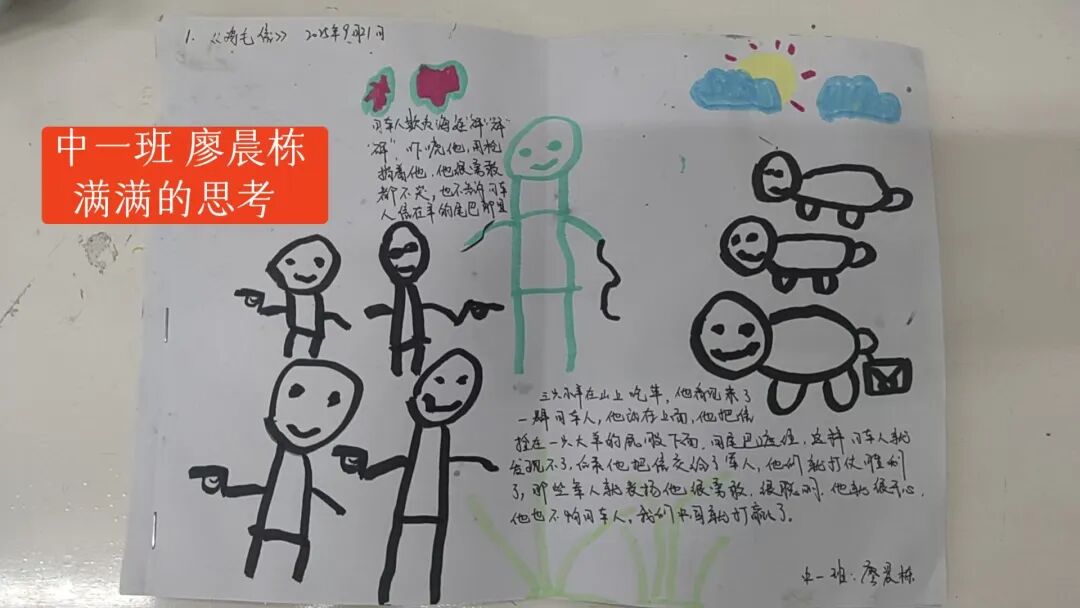 1. 《鸡毛信》 2025年9月21日
中一班 廖晨栋
满满的思考
日军人欺负海娃“砰”“砰”
“砰”吓唬他，用枪
指着他，他很勇敢
都不哭，也不告诉日军
人信在羊的尾巴那里
三只小羊在山上吃草，他看见来了
一群日军人，他站在上面，他把信
拴在一只大羊的屁股下面，用尾巴遮住，这群日军人就
发现不了，后来他把信交给了军人，他们就打仗胜利
了，那些军人就表扬他很勇敢，很聪明，他就很开心，
他也不怕日军人，我们中国就打赢了。
中一班：廖晨栋